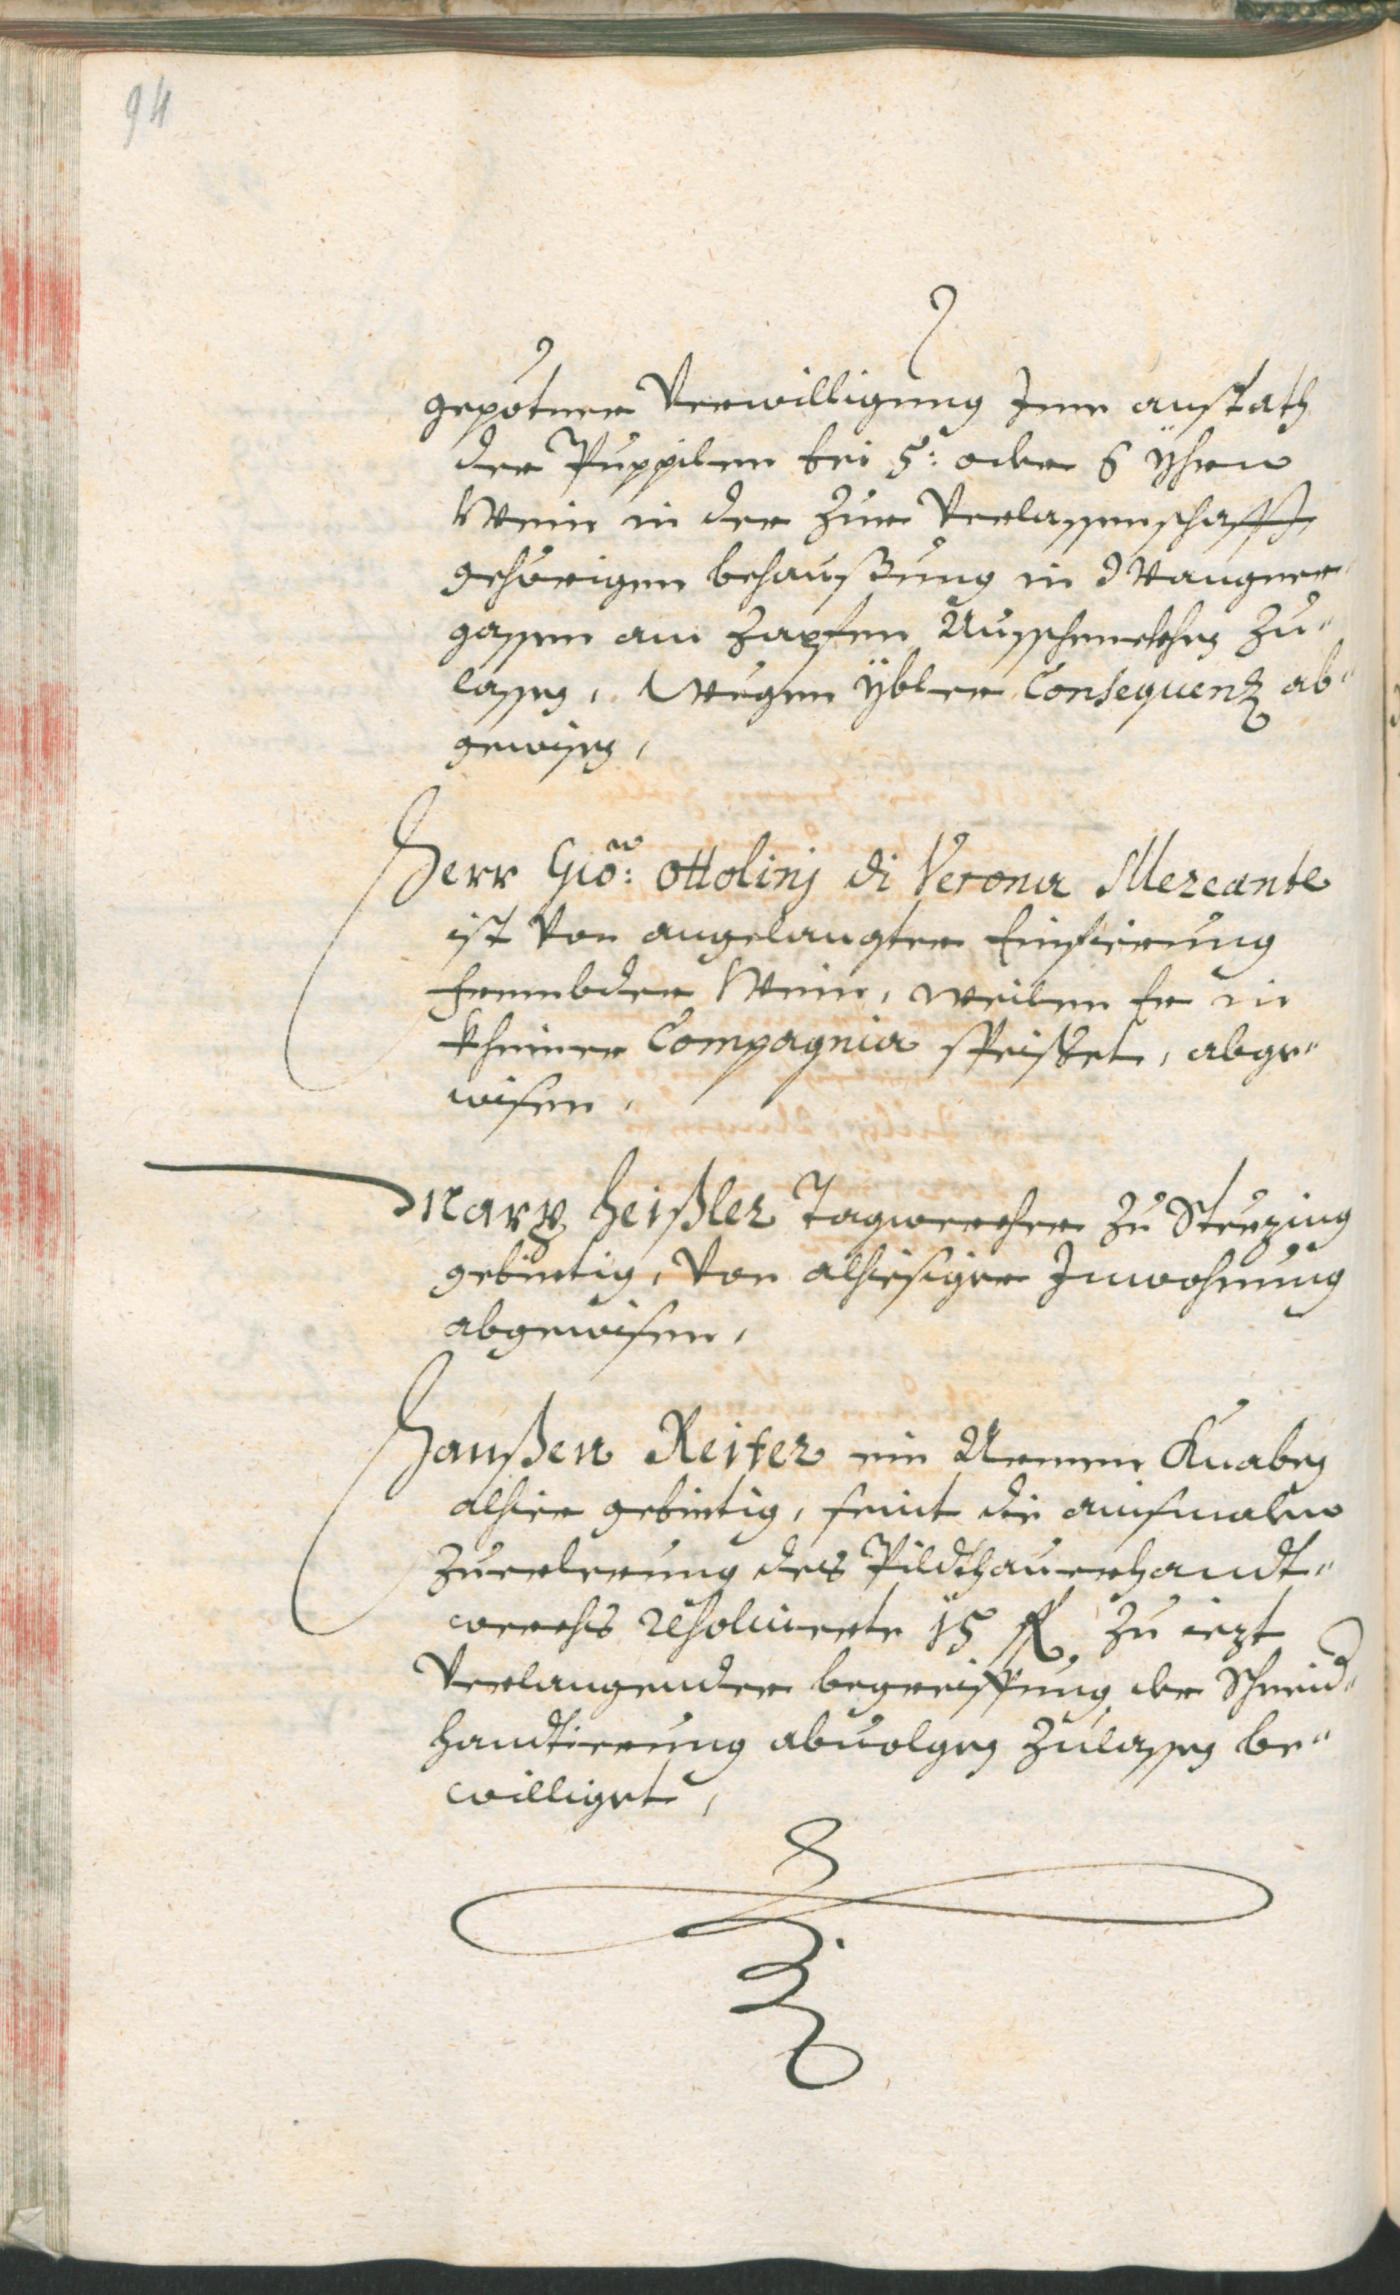 94
gepotner Verwilligung Jme anstath
der Puppilen bei 5: oder 6 Yhrn
Wein in der zur Verlassenschafft
gehörigen behaußung in d Wangner
gassen am Zapfen Ausschenckhen zu"
lassen, Wegen ybler Consequenz ab"
gewisen,
Herr Gio: Ottolinj di Verona Mercante
ist von angelangter Einfierung
frembder Wein, weilen Er in
kheiner Compagnia speißet, abge"
wisen,
Marx Heißler Tagwercher zu Sterzing
gebirtig, von alhiesiger Inwohnung
abgewisen,
Hanßen Reiter ein Armen Knaben
alhier gebirtig, seint die ainsmals
zuerlernung des Pildthauerhandt"
werchs resoluierte 15 fl. zu iezt
verlangender begreiffung der Schneid"
handtierung abuolgen zulassen be"
williget,